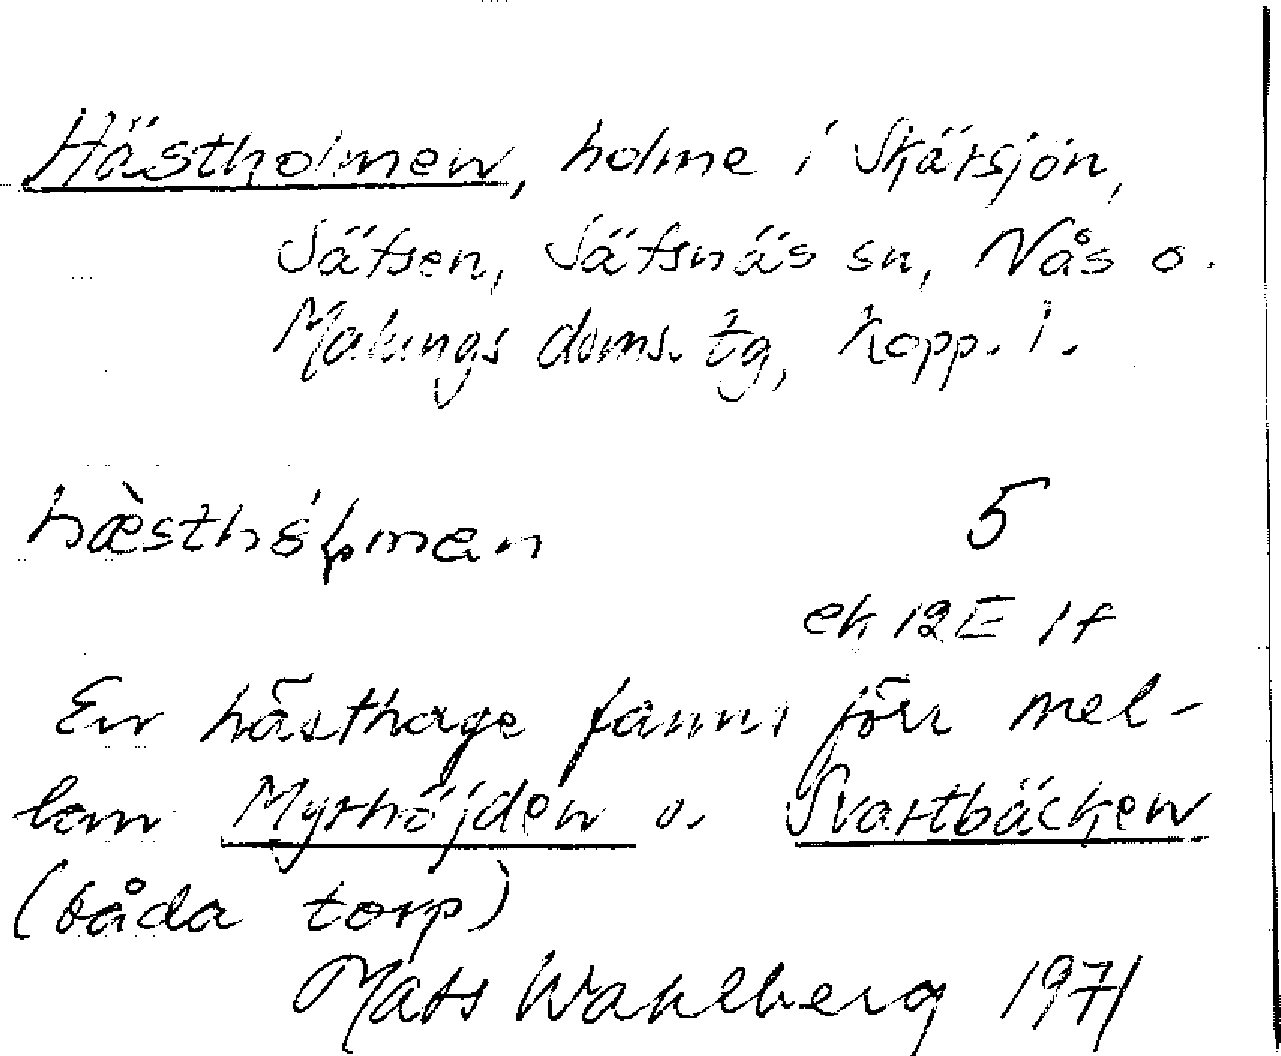 Hästholmen, holme i Skärsjön,
Sätsen, Sätsnäs sn, Nås o.
Malungs doms. tg, Kopp. l.
hæ̀sthóḷman 5
ek 12E 1f
En hästhage fanns förr mel-
lan Myrhöjden o. Svartbäcken
(båda torp)
Mats Wahlberg 1971